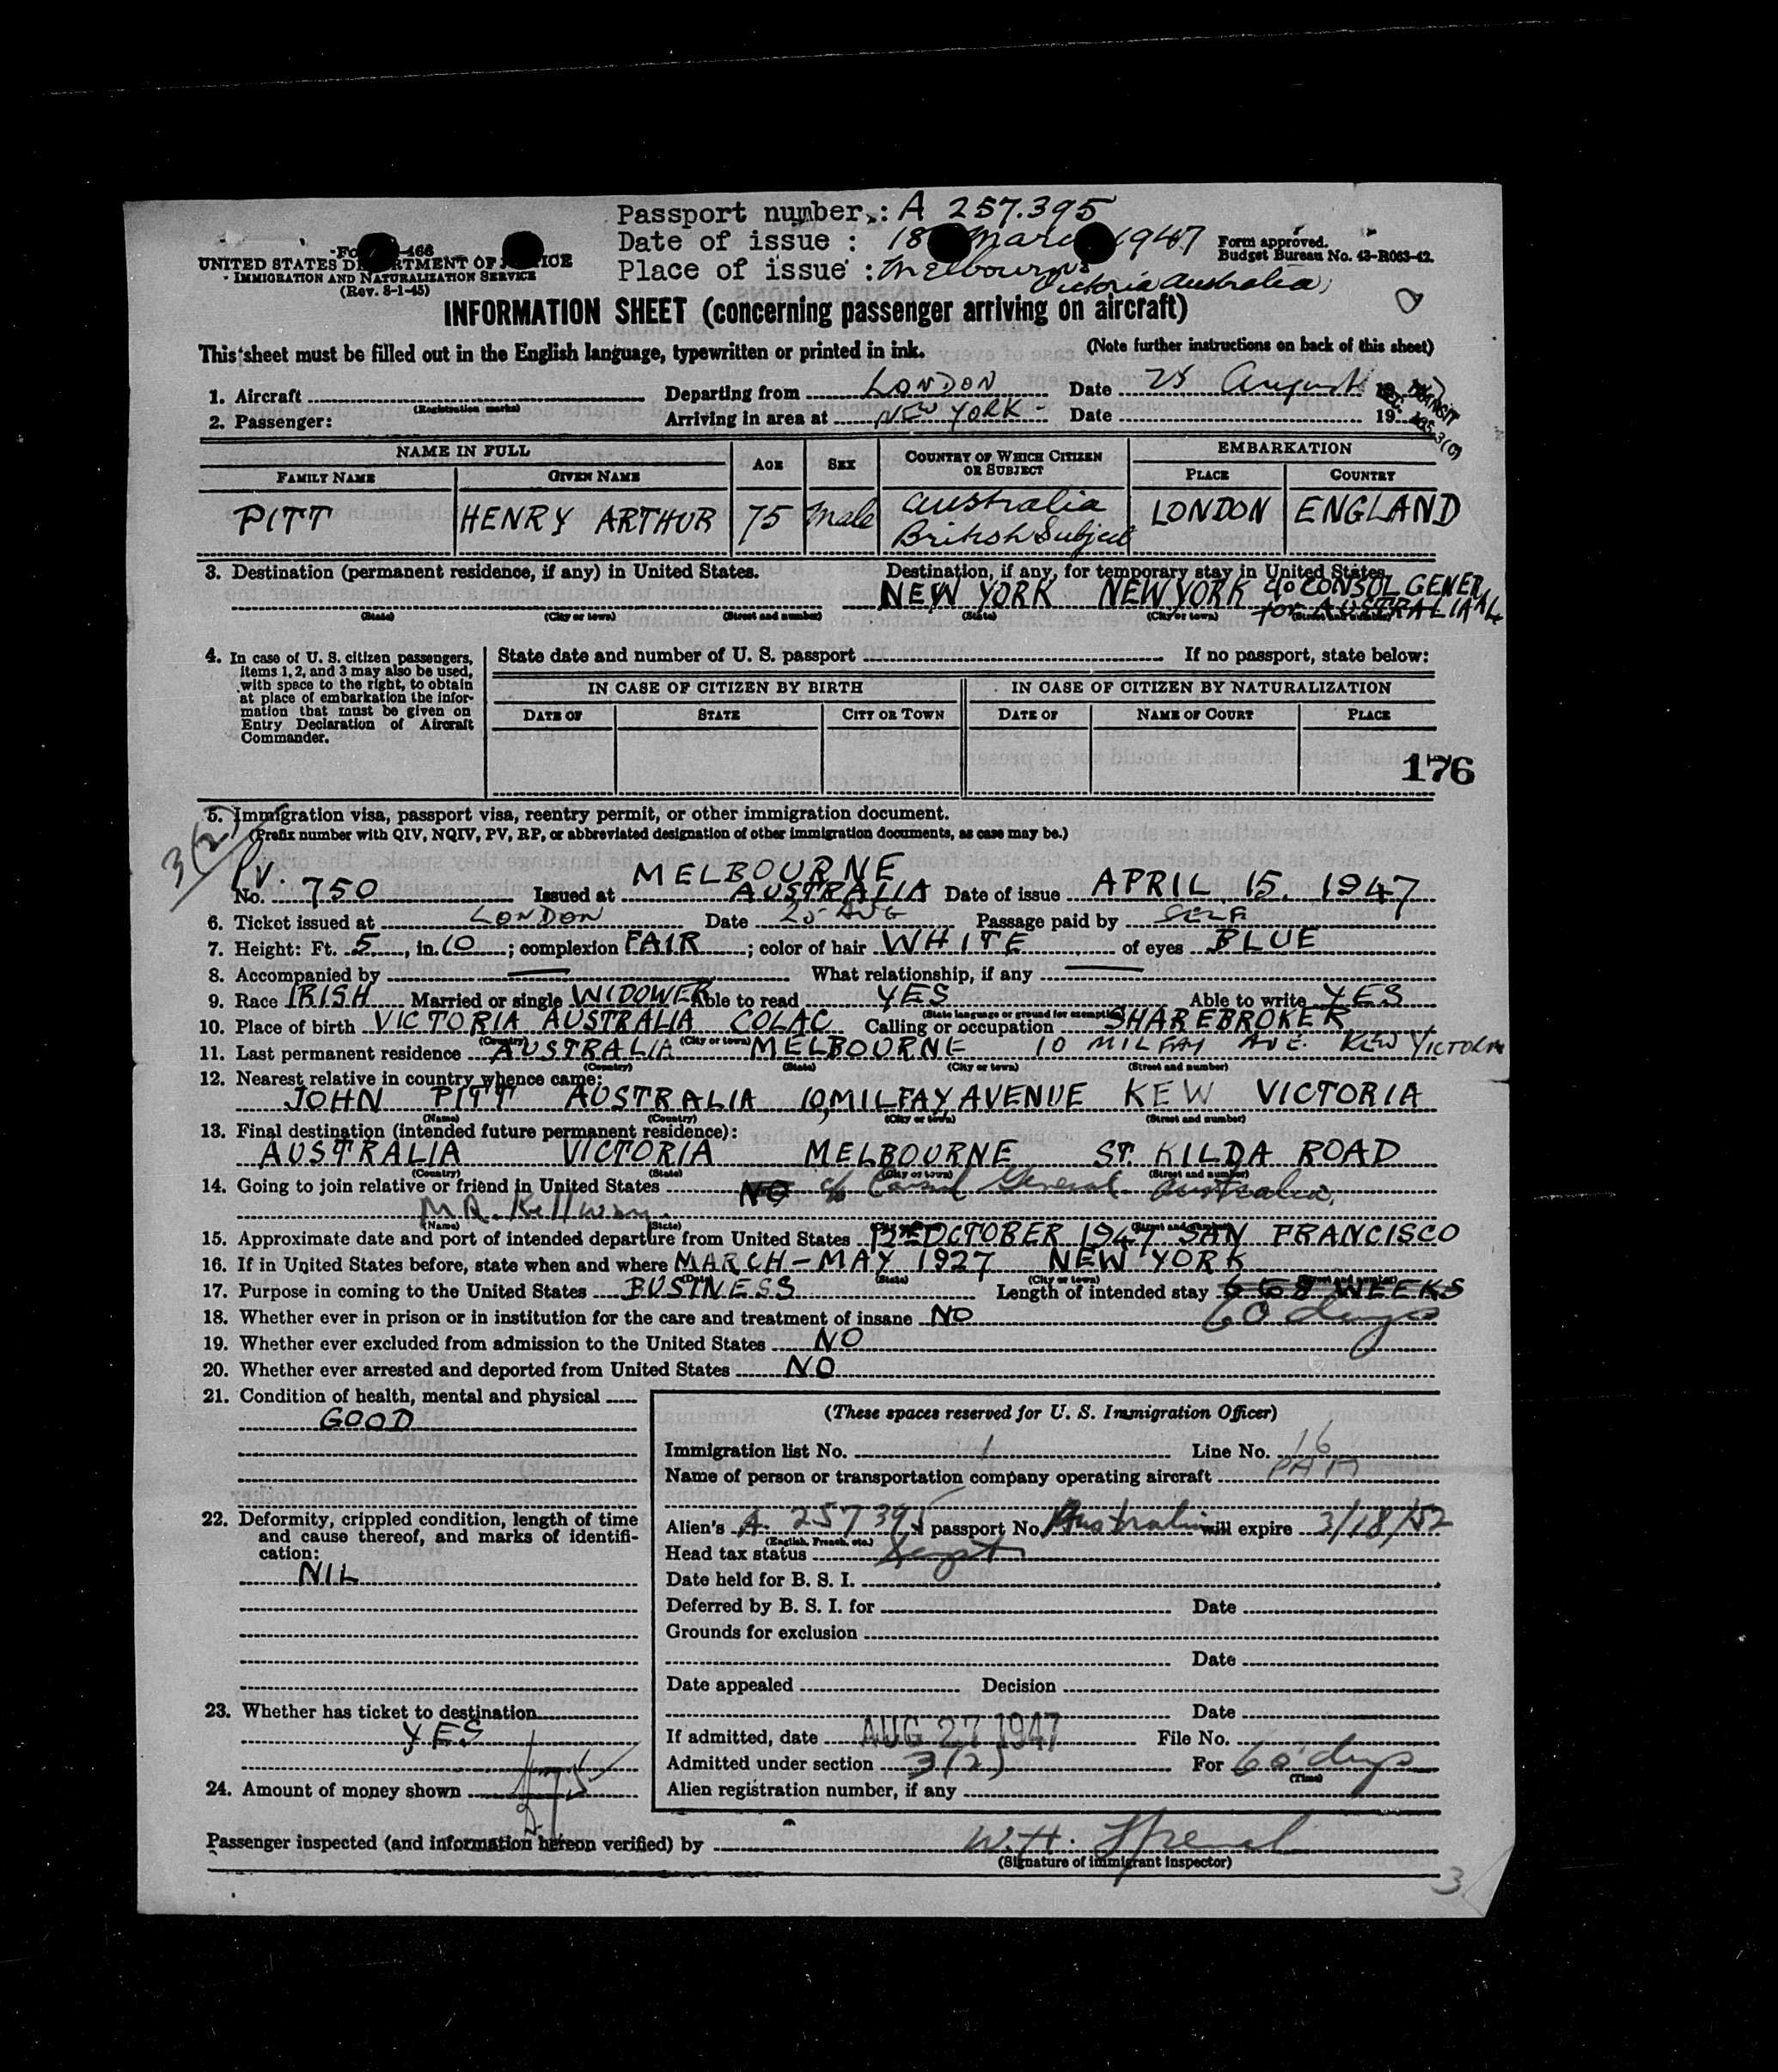 Passport number: A 257.395
Date of issue : 18 March 1947
Place of issue : Melbourne
Victoria Australia,
Form approved.
Budget Bureau No. 43-R063-42.
UNITED STATES DEPARTMENT OF JUSTICE
IMMIGRATION AND NATURALIZATION SERVICE
(Rev. 8-1-45)
INFORMATION SHEET (concerning passenger arriving on aircraft)
This sheet must be filled out in the English language, typewritten or printed in ink. (Note further instructions on back of this sheet)
1. Aircraft Departing from LONDON Date 25 August 19
(Registration marks)
2. Passenger: Arriving in area at NEW YORK - Date 19
TRANSIT
NAME IN FULL AGE SEX COUNTRY OF WHICH CITIZEN OR SUBJECT EMBARKATION
FAMILY NAME GIVEN NAME PLACE COUNTRY
PITT HENRY ARTHUR 75 Male Australia British Subject LONDON ENGLAND
3. Destination (permanent residence, if any) in United States. Destination, if any, for temporary stay in United States.
NEW YORK NEW YORK c/o CONSOL GENERAL
for AUSTRALIA
(State) (City or town) (Street and number) (State) (City or town) (Street and number)
4. In case of U. S. citizen passengers, items 1, 2, and 3 may also be used, with space to the right, to obtain at place of embarkation the information that must be given on Entry Declaration of Aircraft Commander.
State date and number of U. S. passport If no passport, state below:
IN CASE OF CITIZEN BY BIRTH IN CASE OF CITIZEN BY NATURALIZATION
DATE OF STATE CITY OR TOWN DATE OF NAME OF COURT PLACE
176
5. Immigration visa, passport visa, reentry permit, or other immigration document.
(Prefix number with QIV, NQIV, PV, RP, or abbreviated designation of other immigration documents, as case may be.)
3(2)
PV.
No. 750 Issued at MELBOURNE AUSTRALIA Date of issue APRIL 15. 1947
6. Ticket issued at LONDON Date 25 AUG Passage paid by SELF
7. Height: Ft. 5, in. 10; complexion FAIR; color of hair WHITE of eyes BLUE
8. Accompanied by What relationship, if any
9. Race IRISH Married or single WIDOWER Able to read YES Able to write YES
(State language or ground for exemption)
10. Place of birth VICTORIA AUSTRALIA COLAC Calling or occupation SHAREBROKER
(Country) (City or town)
11. Last permanent residence AUSTRALIA MELBOURNE 10 MILFAY AVE. KEW VICTORIA
(Country) (State) (City or town) (Street and number)
12. Nearest relative in country whence came:
JOHN PITT AUSTRALIA 10, MILFAY AVENUE KEW VICTORIA
(Name) (Country) (City or town) (Street and number)
13. Final destination (intended future permanent residence):
AUSTRALIA VICTORIA MELBOURNE ST. KILDA ROAD
(Country) (State) (City or town) (Street and number)
14. Going to join relative or friend in United States NO c/o Consul General Australia,
M R. Kellway.
(Name) (State) (City or town) (Street and number)
15. Approximate date and port of intended departure from United States OCTOBER 1947 SAN FRANCISCO
16. If in United States before, state when and where MARCH - MAY 1927 NEW YORK
(State) (City or town) (Street and number)
17. Purpose in coming to the United States BUSINESS Length of intended stay 6 to 8 WEEKS
60 days
18. Whether ever in prison or in institution for the care and treatment of insane NO
19. Whether ever excluded from admission to the United States NO
20. Whether ever arrested and deported from United States NO
21. Condition of health, mental and physical
GOOD
22. Deformity, crippled condition, length of time and cause thereof, and marks of identification:
NIL
23. Whether has ticket to destination
YES
24. Amount of money shown
(These spaces reserved for U. S. Immigration Officer)
Immigration list No. 1 Line No. 16
Name of person or transportation company operating aircraft PAA
Alien's A. 257395 passport No. Australia will expire 3/18/52
(English, French, etc.)
Head tax status
Date held for B. S. I.
Deferred by B. S. I. for Date
Grounds for exclusion
Date
Date appealed Decision
Date
If admitted, date AUG 27 1947 File No.
Admitted under section 3(2) For 60 days
(Time)
Alien registration number, if any
Passenger inspected (and information hereon verified) by W.H.
(Signature of immigrant inspector)
3